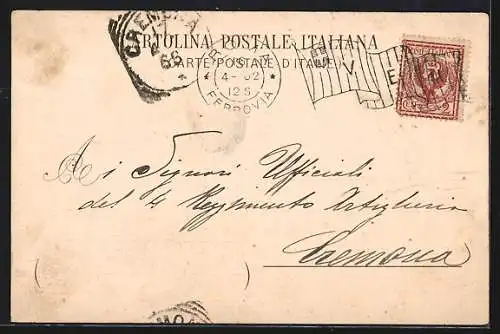 CREMONA
CARTOLINA POSTALE ITALIANA
(CARTE POSTALE D'ITALIE)
4- 02
12 S
FERROVIA
V
E
Ai Signori Ufficiali
del 4 Reggimento Artiglieria
Cremona